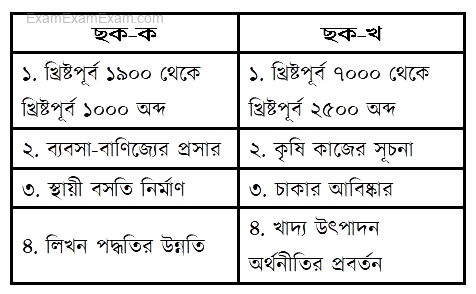 ExamExamExam.com
ছক-ক
ছক-খ
১. খ্রিষ্টপূর্ব ১৯০০ থেকে
খ্রিষ্টপূর্ব ১০০০ অব্দ
১. খ্রিষ্টপূর্ব ৭০০০ থেকে
খ্রিষ্টপূর্ব ২৫০০ অব্দ
২. ব্যবসা-বাণিজ্যের প্রসার
২. কৃষি কাজের সূচনা
৩. স্থায়ী বসতি নির্মাণ
৩. চাকার আবিষ্কার
৪. লিখন পদ্ধতির উন্নতি
৪. খাদ্য উৎপাদন
অর্থনীতির প্রবর্তন